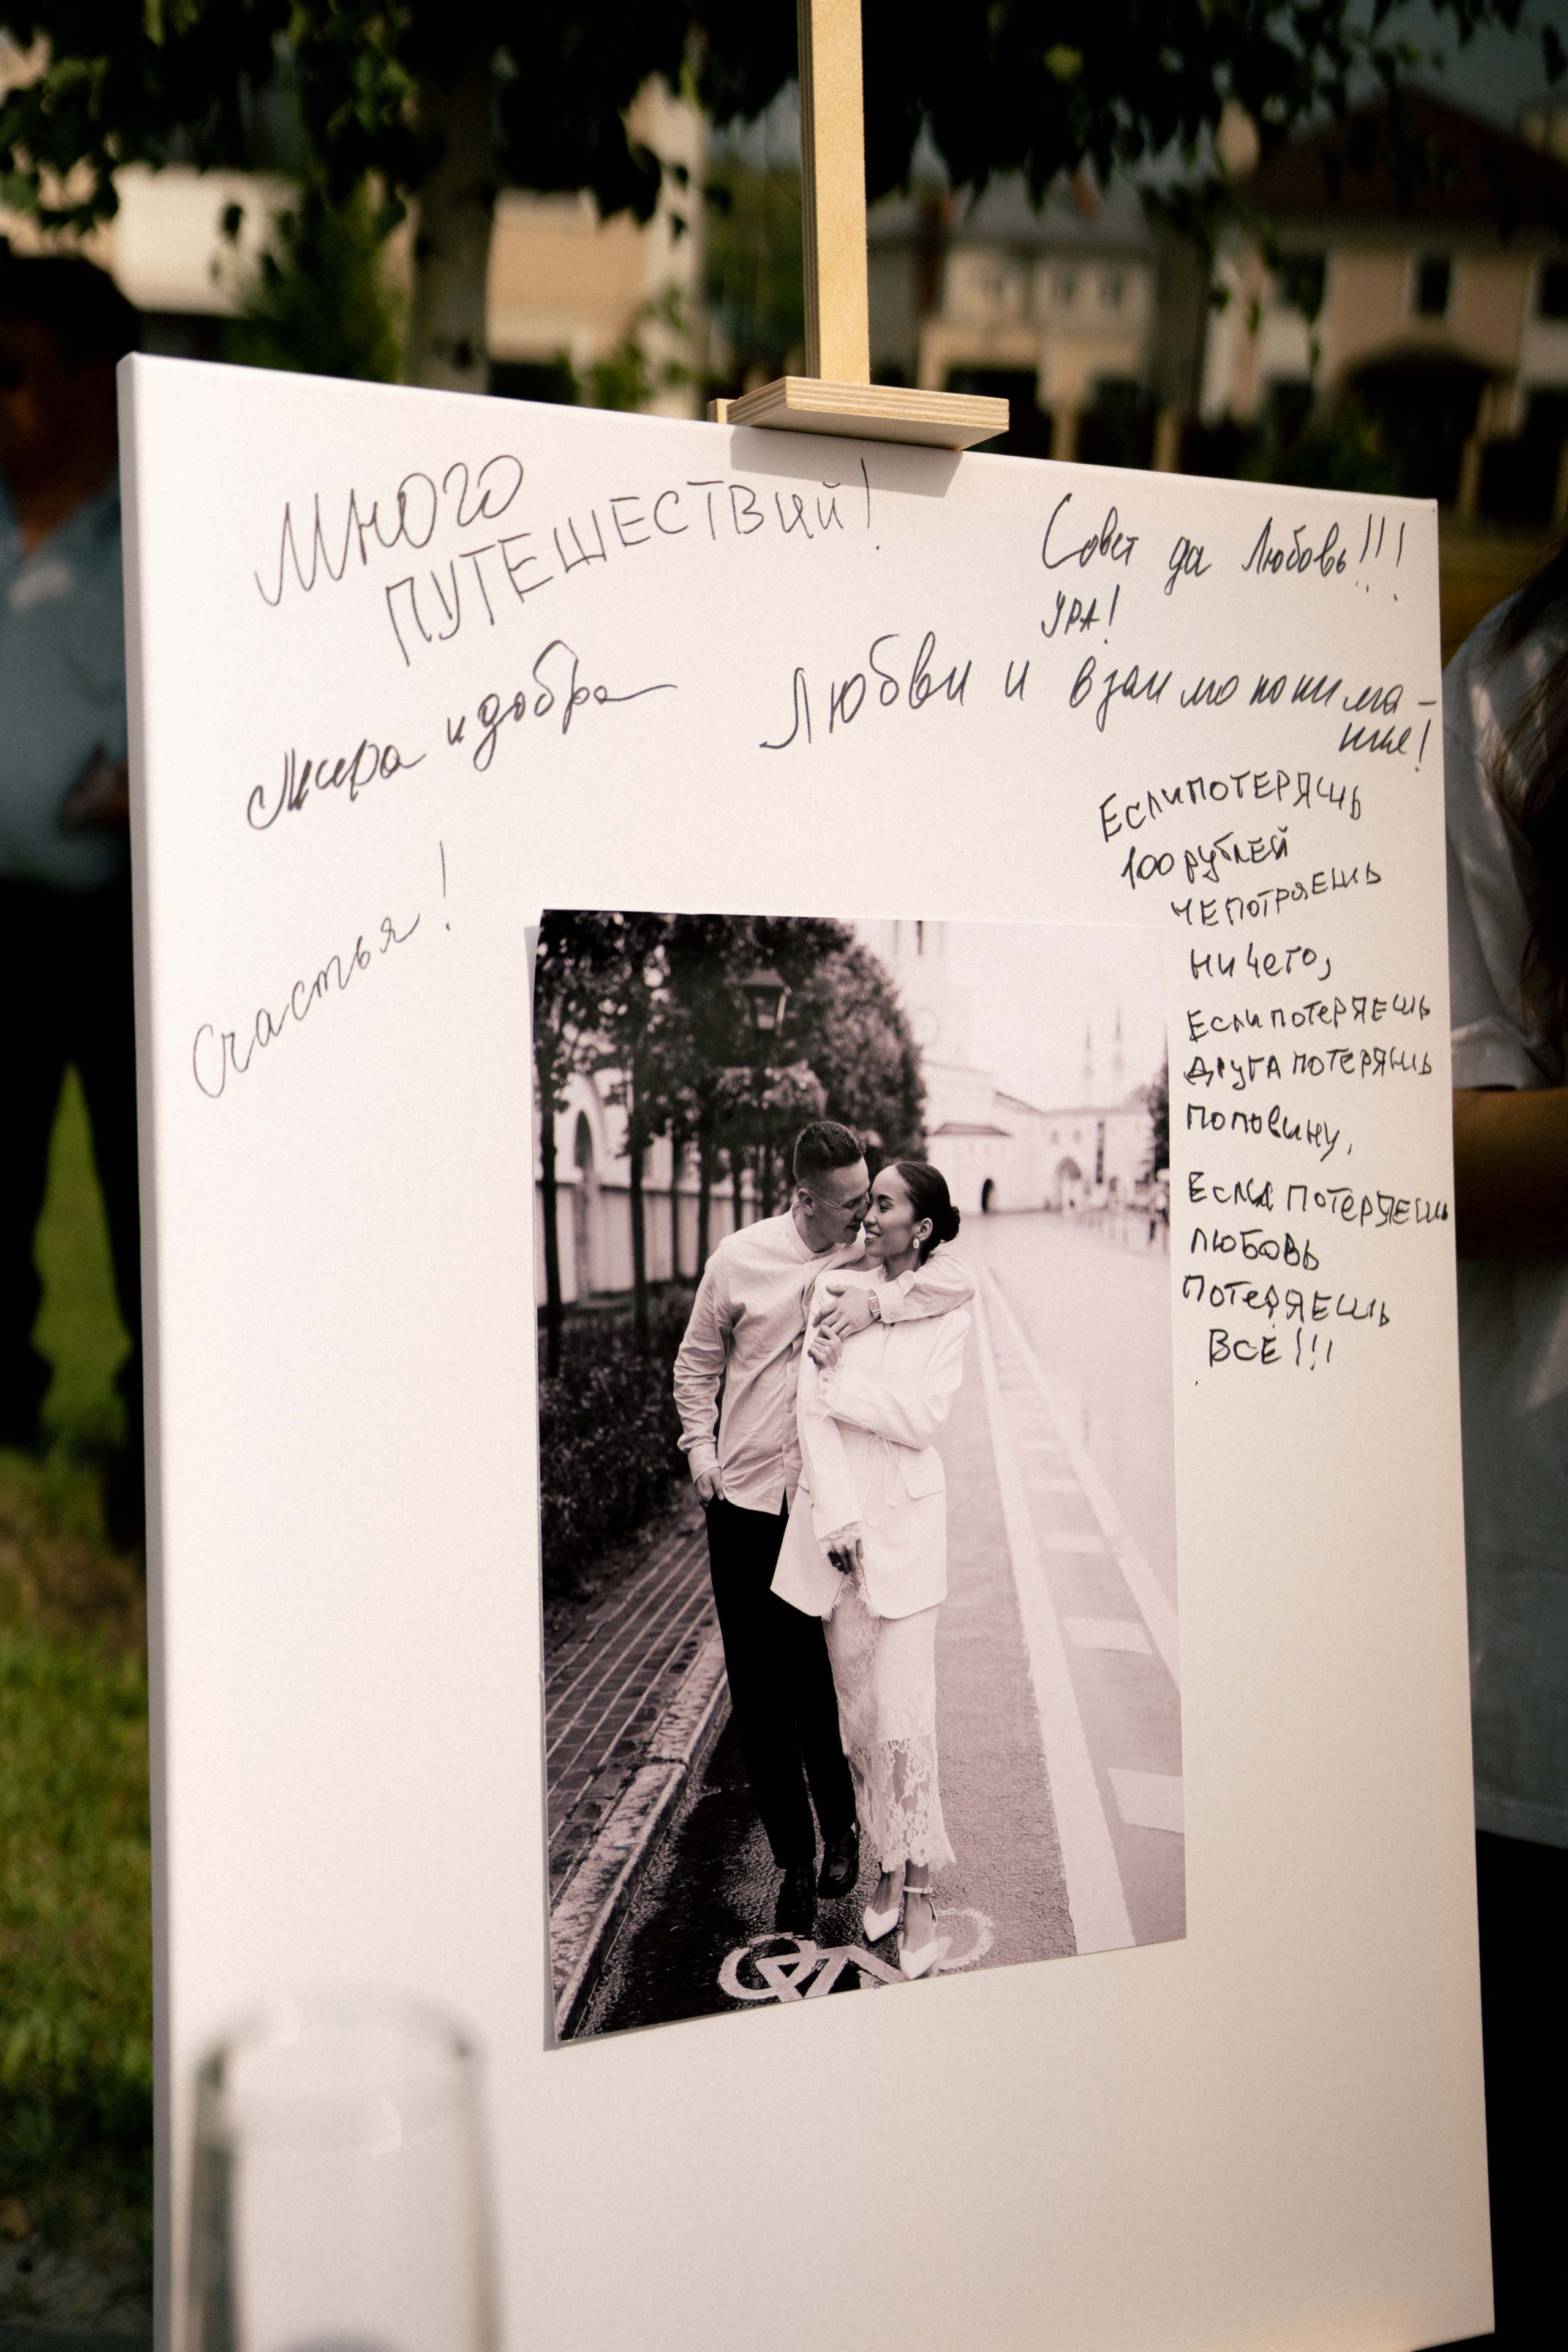 Много
ПУТЕШЕСТВИЙ!
Мира и добра
Счастья!
Совет да Любовь!!!
УРА!
Любви и взаимопонима-
ние!
ЕСЛИ ПОТЕРЯШЬ
100 рублЕЙ
НЕ ПОТРЯЕШЬ
НИЧЕГО,
Если потеРЯЕШЬ
ДРУГА ПОТЕРЯШЬ
половину,
ЕСЛИ ПОТЕРЯЕШЬ
ЛЮБОВЬ
ПОТЕРЯЕШЬ
ВСЁ!!!